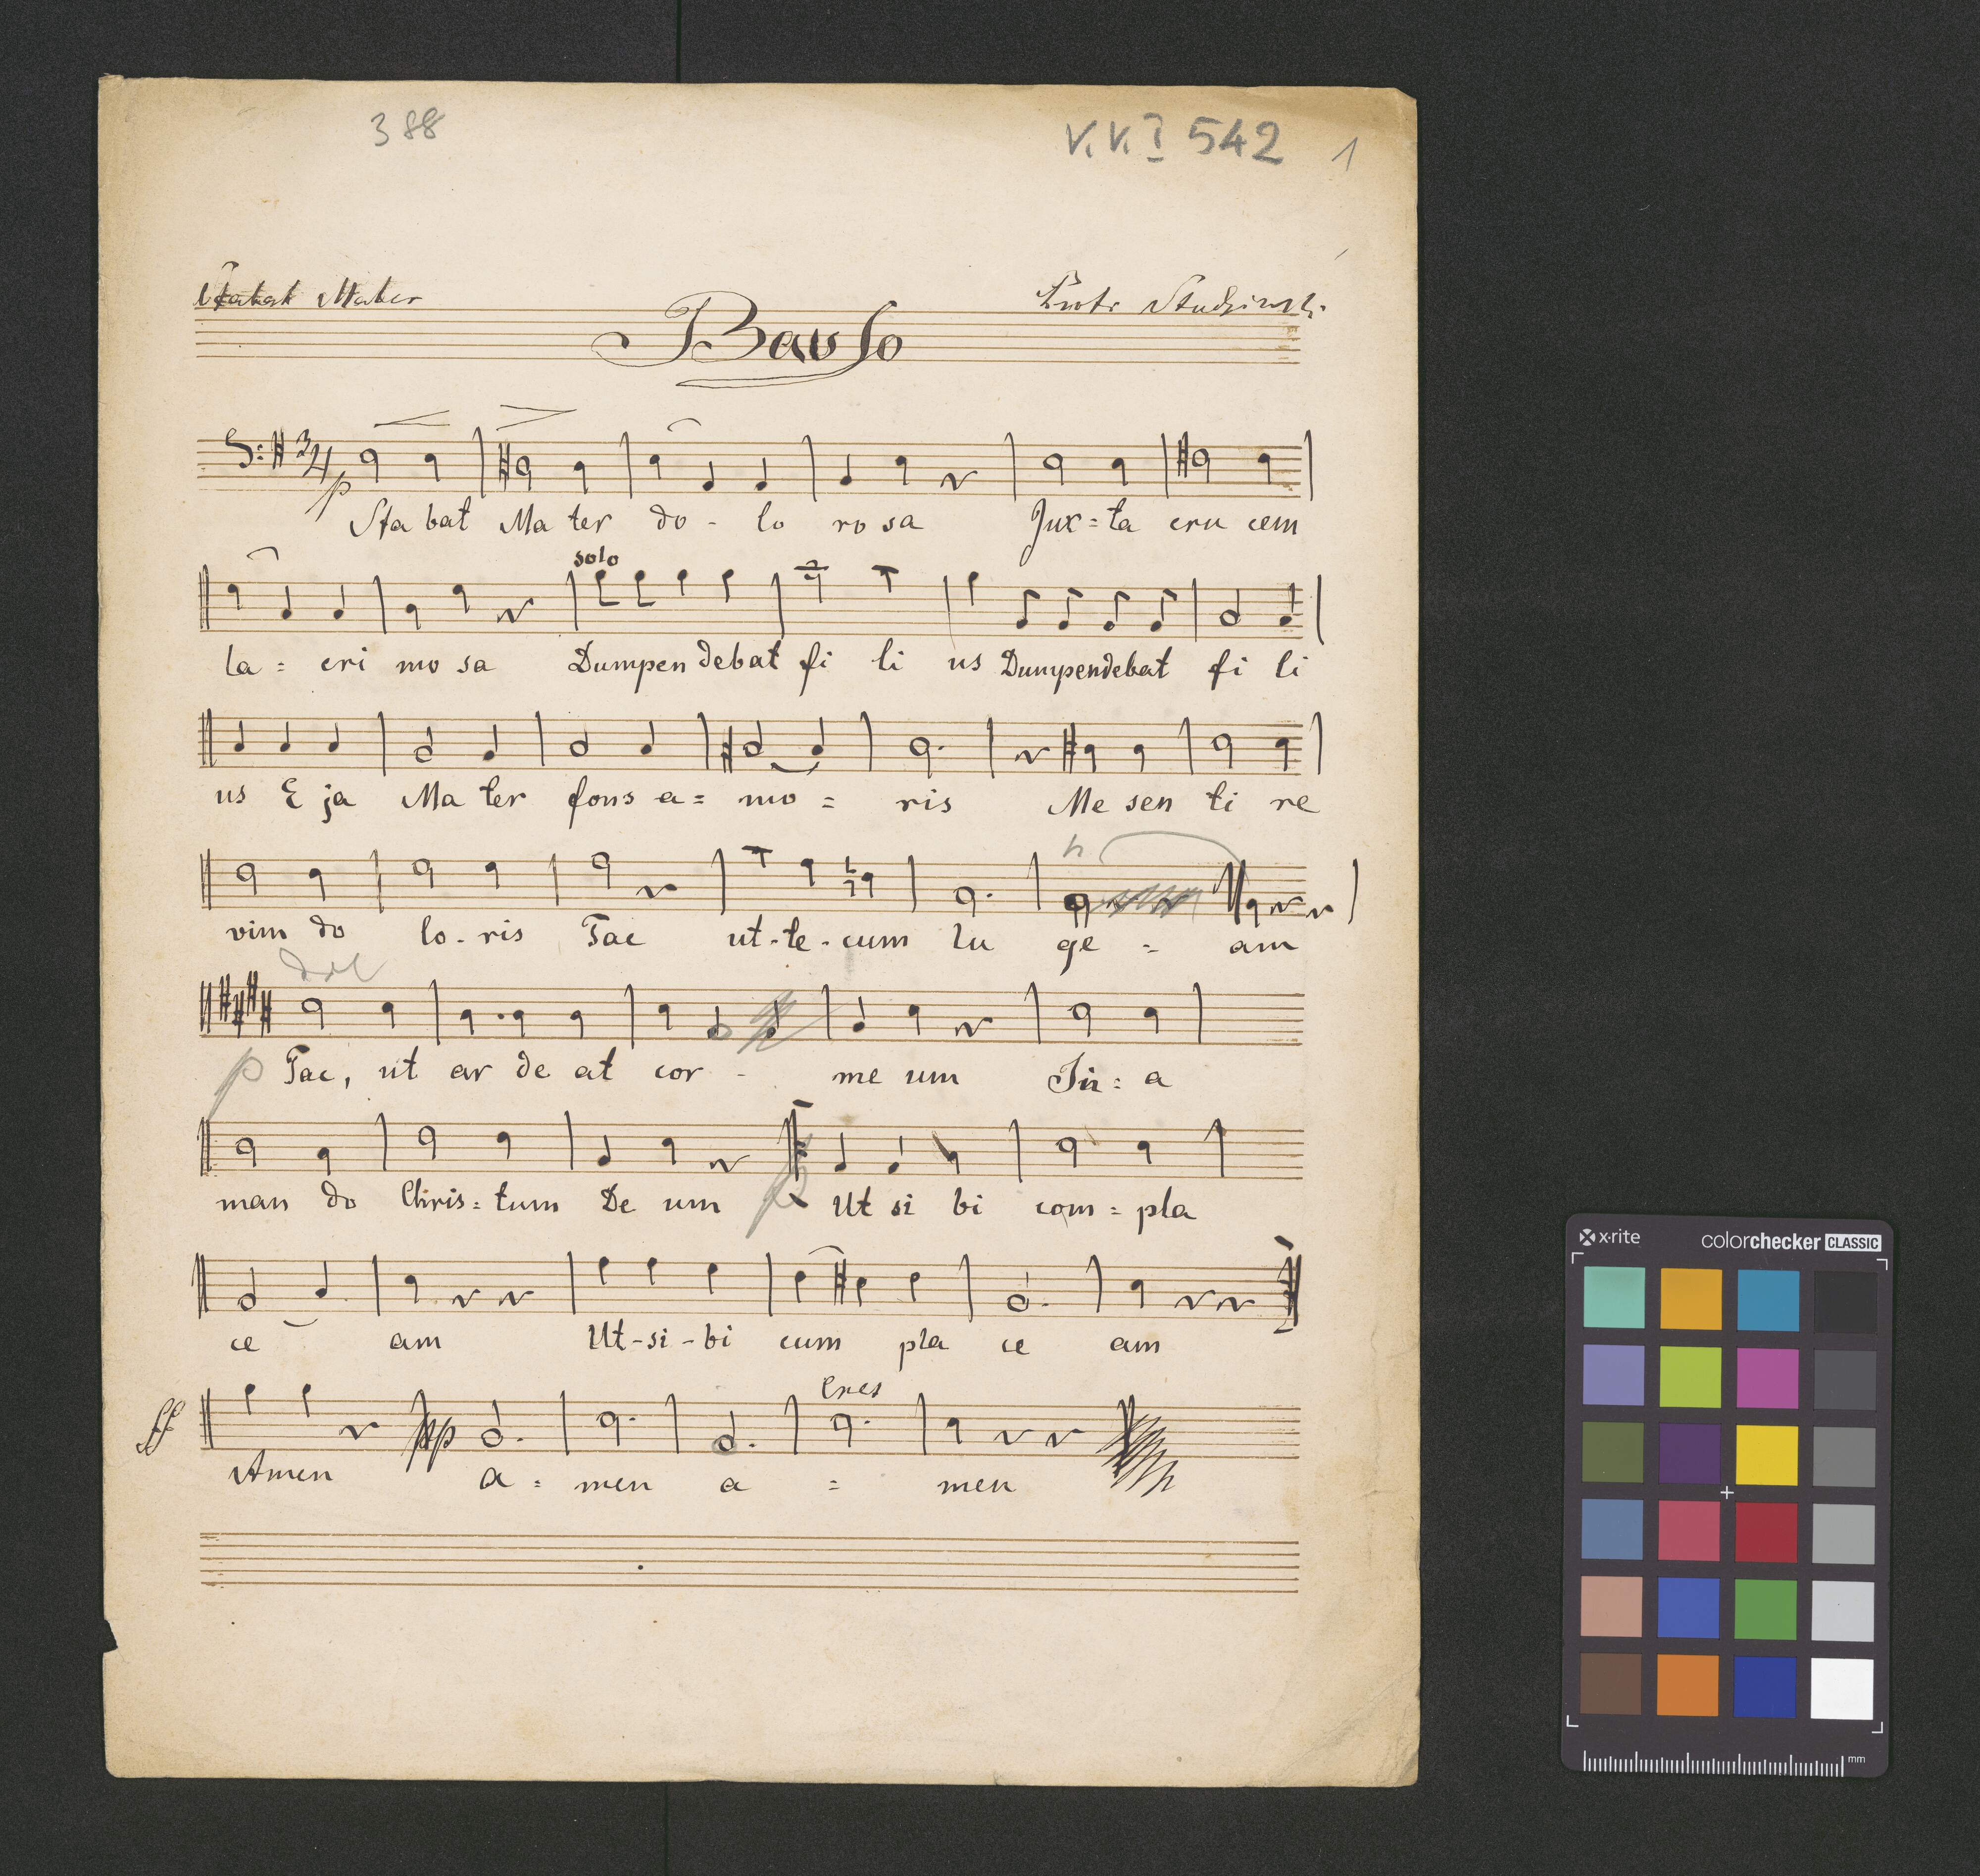 388
V.V.I 542 1
Stabat Mater
Piotr Studziński
Basso
3/4
p
Sta bat Ma ter do - lo ro sa Jux = ta cru cem
solo
la = cri mo sa Dumpen debat fi li us Dumpendebat fi li
us E ja Ma ter fons a = mo = ris Me sen ti re
vim do lo - ris Fac ut - te - cum lu ge = am
dol
p Fac, ut ar de at cor - me um In = a
man do Chris = tum De um p Ut si bi com = pla
ce am Ut - si - bi cum pla ce am
cres
ff pp
Amen a = men a = men
x·rite colorchecker CLASSIC
mm